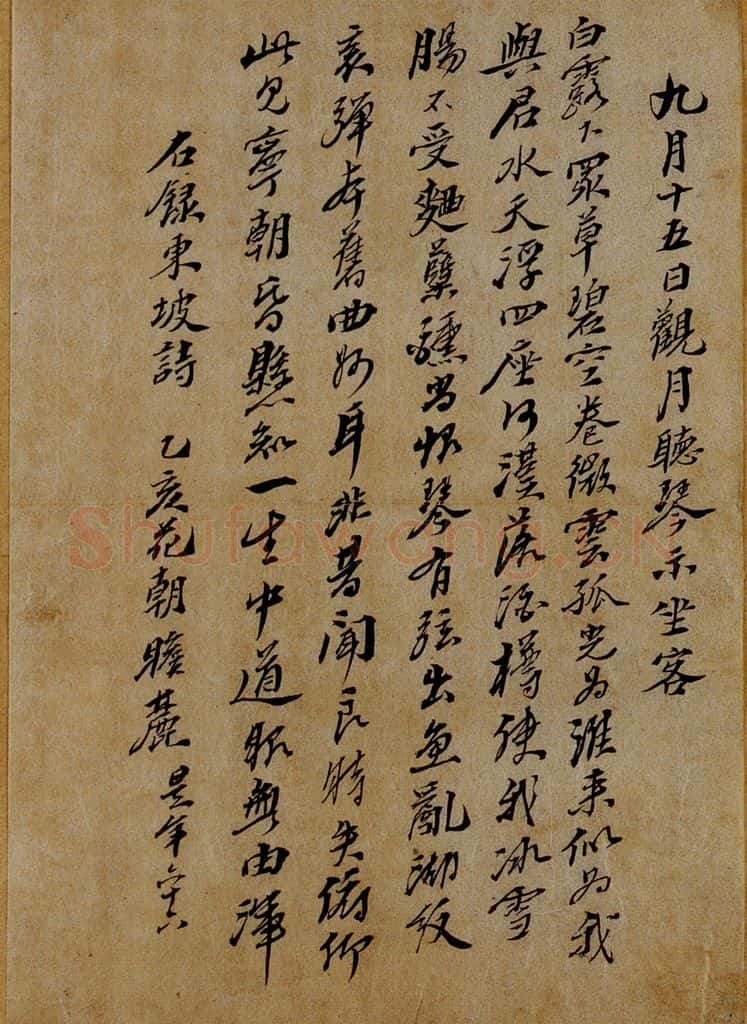 九月十五日觀月聽琴示坐客
白露下衆草碧空卷微雲孤光為誰來似為我
與君水天浮四座河漢落酒樽使我冰雪
腸不受麴蘖醺尚恨琴有弦出魚亂湖紋
哀彈本舊曲妙耳非昔聞良時失俯仰
此見寧朝昏懸知一生中道眼無由渾
右錄東坡詩 乙亥花朝瞻麓 是年六十六
Shufawang.CN